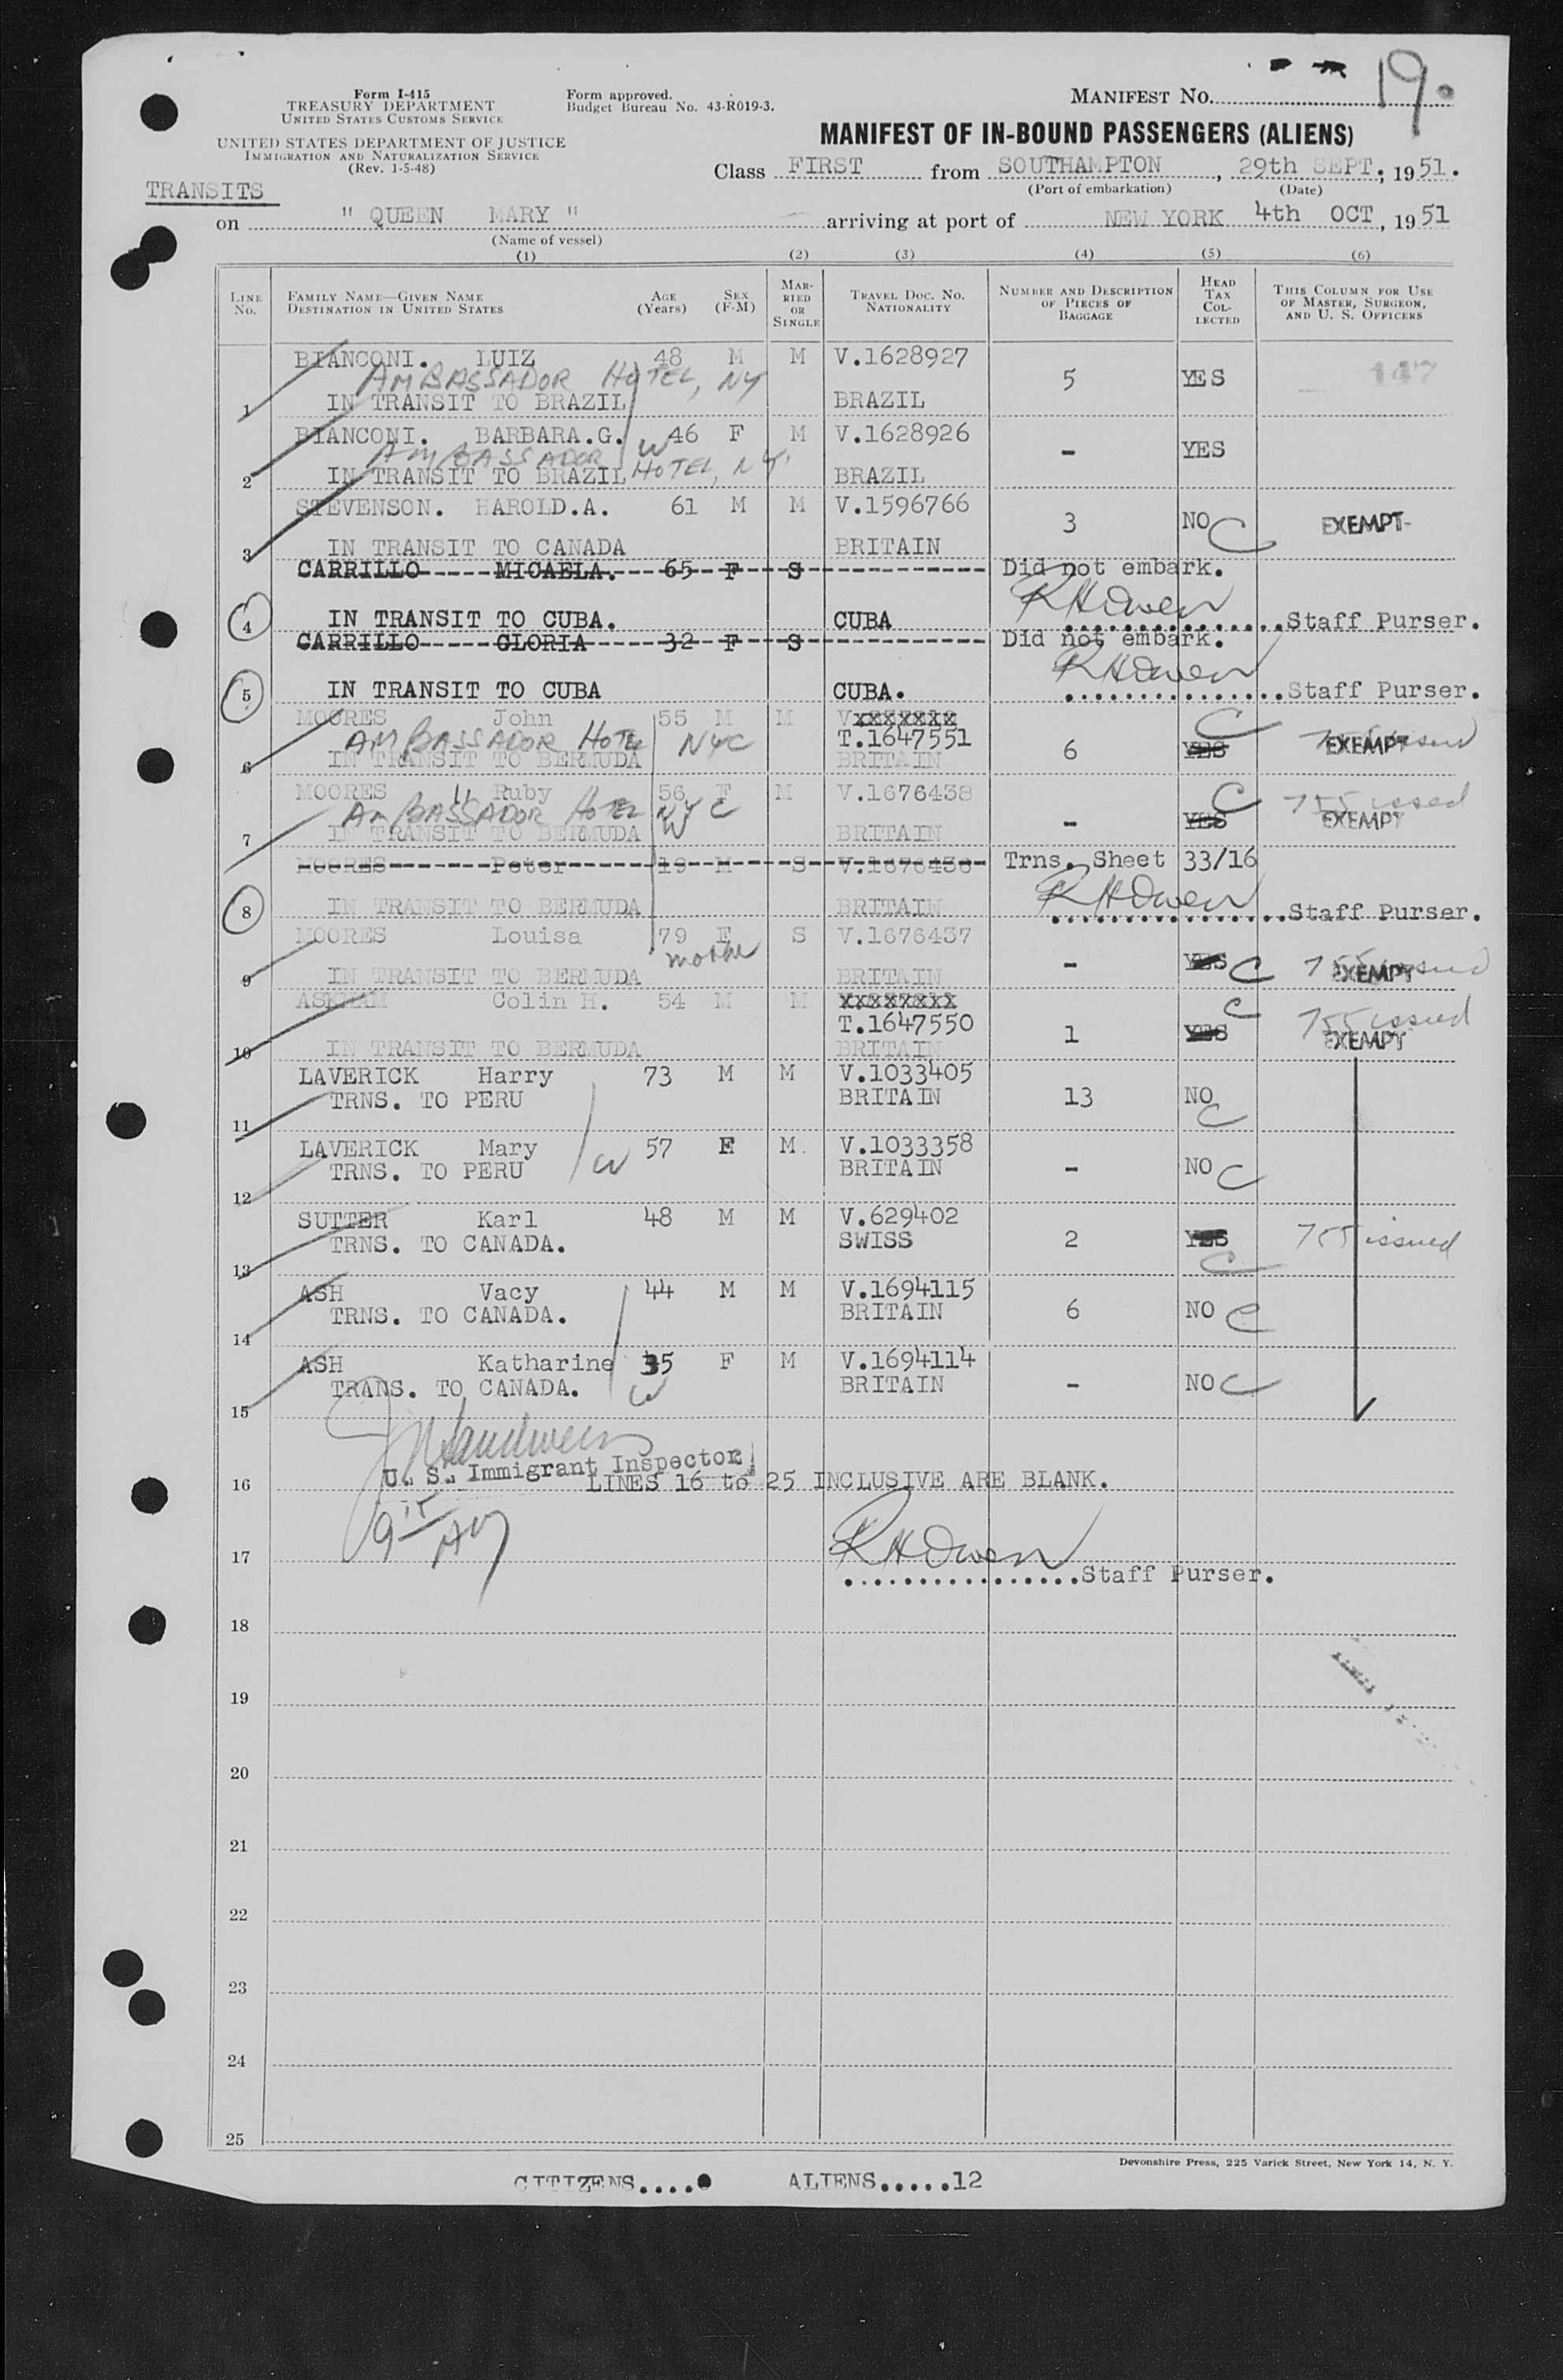 Form I-415
TREASURY DEPARTMENT
UNITED STATES CUSTOMS SERVICE
UNITED STATES DEPARTMENT OF JUSTICE
IMMIGRATION AND NATURALIZATION SERVICE
(Rev. 1-5-48)
Form approved.
Budget Bureau No. 43-R019-3.
MANIFEST No. 19.
MANIFEST OF IN-BOUND PASSENGERS (ALIENS)
Class FIRST from SOUTHAMPTON, 29th SEPT, 1951.
(Port of embarkation) (Date)
TRANSITS
on " QUEEN MARY " arriving at port of NEW YORK 4th OCT, 1951
(Name of vessel)
(1) (2) (3) (4) (5) (6)
LINE No. FAMILY NAME—GIVEN NAME DESTINATION IN UNITED STATES AGE (Years) SEX (F-M) MARRIED OR SINGLE TRAVEL DOC. NO. NATIONALITY NUMBER AND DESCRIPTION OF PIECES OF BAGGAGE HEAD TAX COLLECTED THIS COLUMN FOR USE OF MASTER, SURGEON, AND U. S. OFFICERS
BIANCONI. LUIZ 48 M M V.1628927
AMBASSADOR HOTEL, NY 5 YES 147
1 IN TRANSIT TO BRAZIL BRAZIL
BIANCONI. BARBARA.G. W 46 F M V.1628926
AMBASSADOR HOTEL, NY - YES
2 IN TRANSIT TO BRAZIL BRAZIL
STEVENSON. HAROLD.A. 61 M M V.1596766
3 NO C EXEMPT-
3 IN TRANSIT TO CANADA BRITAIN
CARRILLO-----MICAELA.---65--F---S------------ Did not embark.
RHOwen
4 IN TRANSIT TO CUBA. CUBA ...............Staff Purser.
CARRILLO-----GLORIA-----32--F---S------------ Did not embark.
RHOwen
5 IN TRANSIT TO CUBA CUBA. ...............Staff Purser.
MOORES John 55 M M Vxxxxxxx C
AMBASSADOR HOTEL NYC T.1647551 6 YES 755 issued EXEMPT
6 IN TRANSIT TO BERMUDA BRITAIN
MOORES " Ruby 56 F M V.1676438 C 755 issued
AMBASSADOR HOTEL NYC - YES EXEMPT
7 IN TRANSIT TO BERMUDA W BRITAIN
MOORES------Peter------19--M----S--V.1676436- Trns. Sheet 33/16
RHOwen
8 IN TRANSIT TO BERMUDA BRITAIN ...............Staff Purser.
MOORES Louisa 79 F S V.1676437
mother - YES C 755 issued EXEMPT
9 IN TRANSIT TO BERMUDA BRITAIN
ASKHAM Colin H. 54 M M xxxxxxxx C
T.1647550 1 YES 755 issued EXEMPT
10 IN TRANSIT TO BERMUDA BRITAIN
LAVERICK Harry 73 M M V.1033405
11 TRNS. TO PERU BRITAIN 13 NO C
LAVERICK Mary W 57 F M. V.1033358
12 TRNS. TO PERU BRITAIN - NO C
SUTTER Karl 48 M M V.629402
13 TRNS. TO CANADA. SWISS 2 YES C 755 issued
ASH Vacy 44 M M V.1694115
14 TRNS. TO CANADA. BRITAIN 6 NO C
ASH Katharine 35 F M V.1694114
15 TRANS. TO CANADA. W BRITAIN - NO C
U. S. Immigrant Inspector
16 LINES 16 to 25 INCLUSIVE ARE BLANK.
RHOwen
17 ................Staff Purser.
18
19
20
21
22
23
24
25
Devonshire Press, 225 Varick Street, New York 14, N. Y.
CITIZENS..... ALIENS.....12